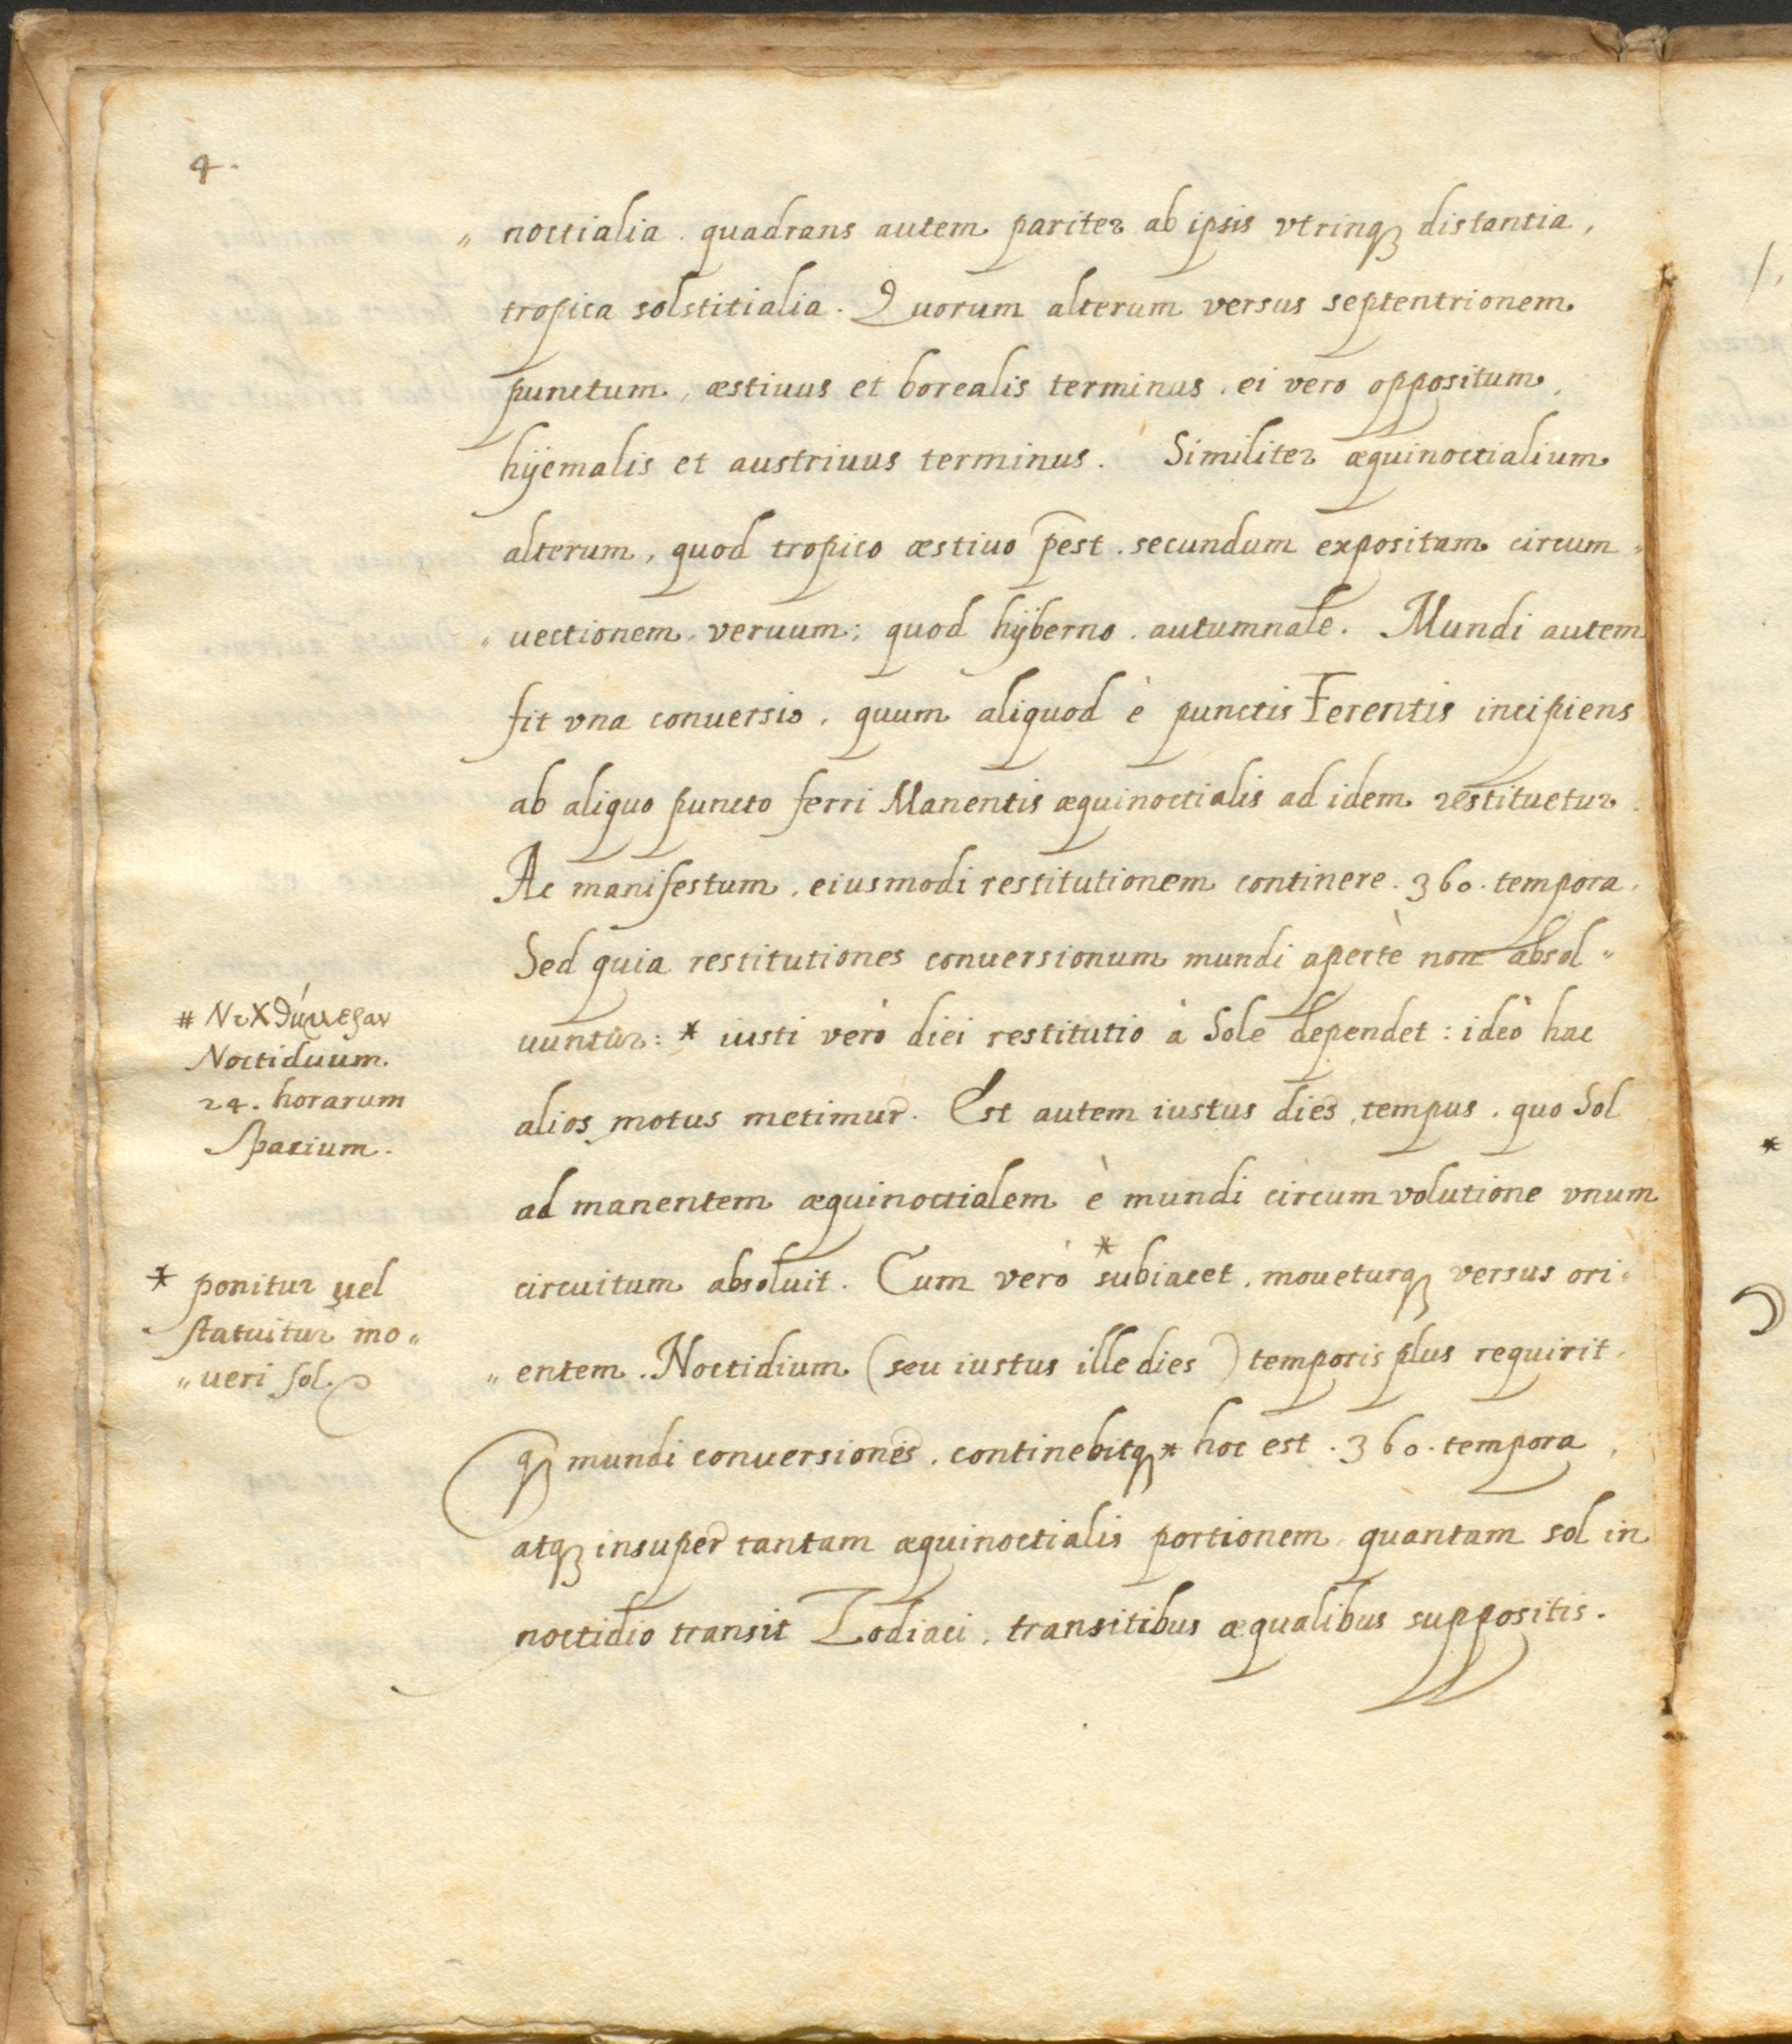 4.
„ noctialia. quadrans autem pariter ab ipsis vtrinq; distantia,
tropica solstitialia. Quorum alterum versus septentrionem
punctum, æstiuus et borealis terminus. ei vero oppositum,
hÿemalis et austriuus terminus. Similiter æquinoctialium
alterum, quod tropico æstiuo p̄est. secundum expositam circum„
„ uectionem, veruum; quod hÿberno. autumnale. Mundi autem
fit vna conuersio, quum aliquod è punctis Ferentis incipiens
ab aliquo puncto ferri Manentis æquinoctialis ad idem restituetur.
Ac manifestum, eiusmodi restitutionem continere. 360. tempora.
Sed quia restitutiones conuersionum mundi apertè non absol„
uuntur: * iusti verò diei restitutio à Sole dependet: ideò hac
alios motus metimur. Est autem iustus dies, tempus. quo Sol
ad manentem æquinoctialem è mundi circum volutione vnum
circuitum absoluit. Cum verò * subiacet, moueturq; versus ori„
„ entem. Noctidium (seu iustus ille dies) temporis plus requirit.
q; mundi conuersiones. continebitq; * hoc est. 360. tempora,
atq; insuper tantam æquinoctialis portionem, quantam sol in
noctidio transit Zodiaci, transitibus æqualibus suppositis.
#
Noctiduum.
24. horarum
Spacium.
* ponitur uel
statuitur mo„
„ueri sol.